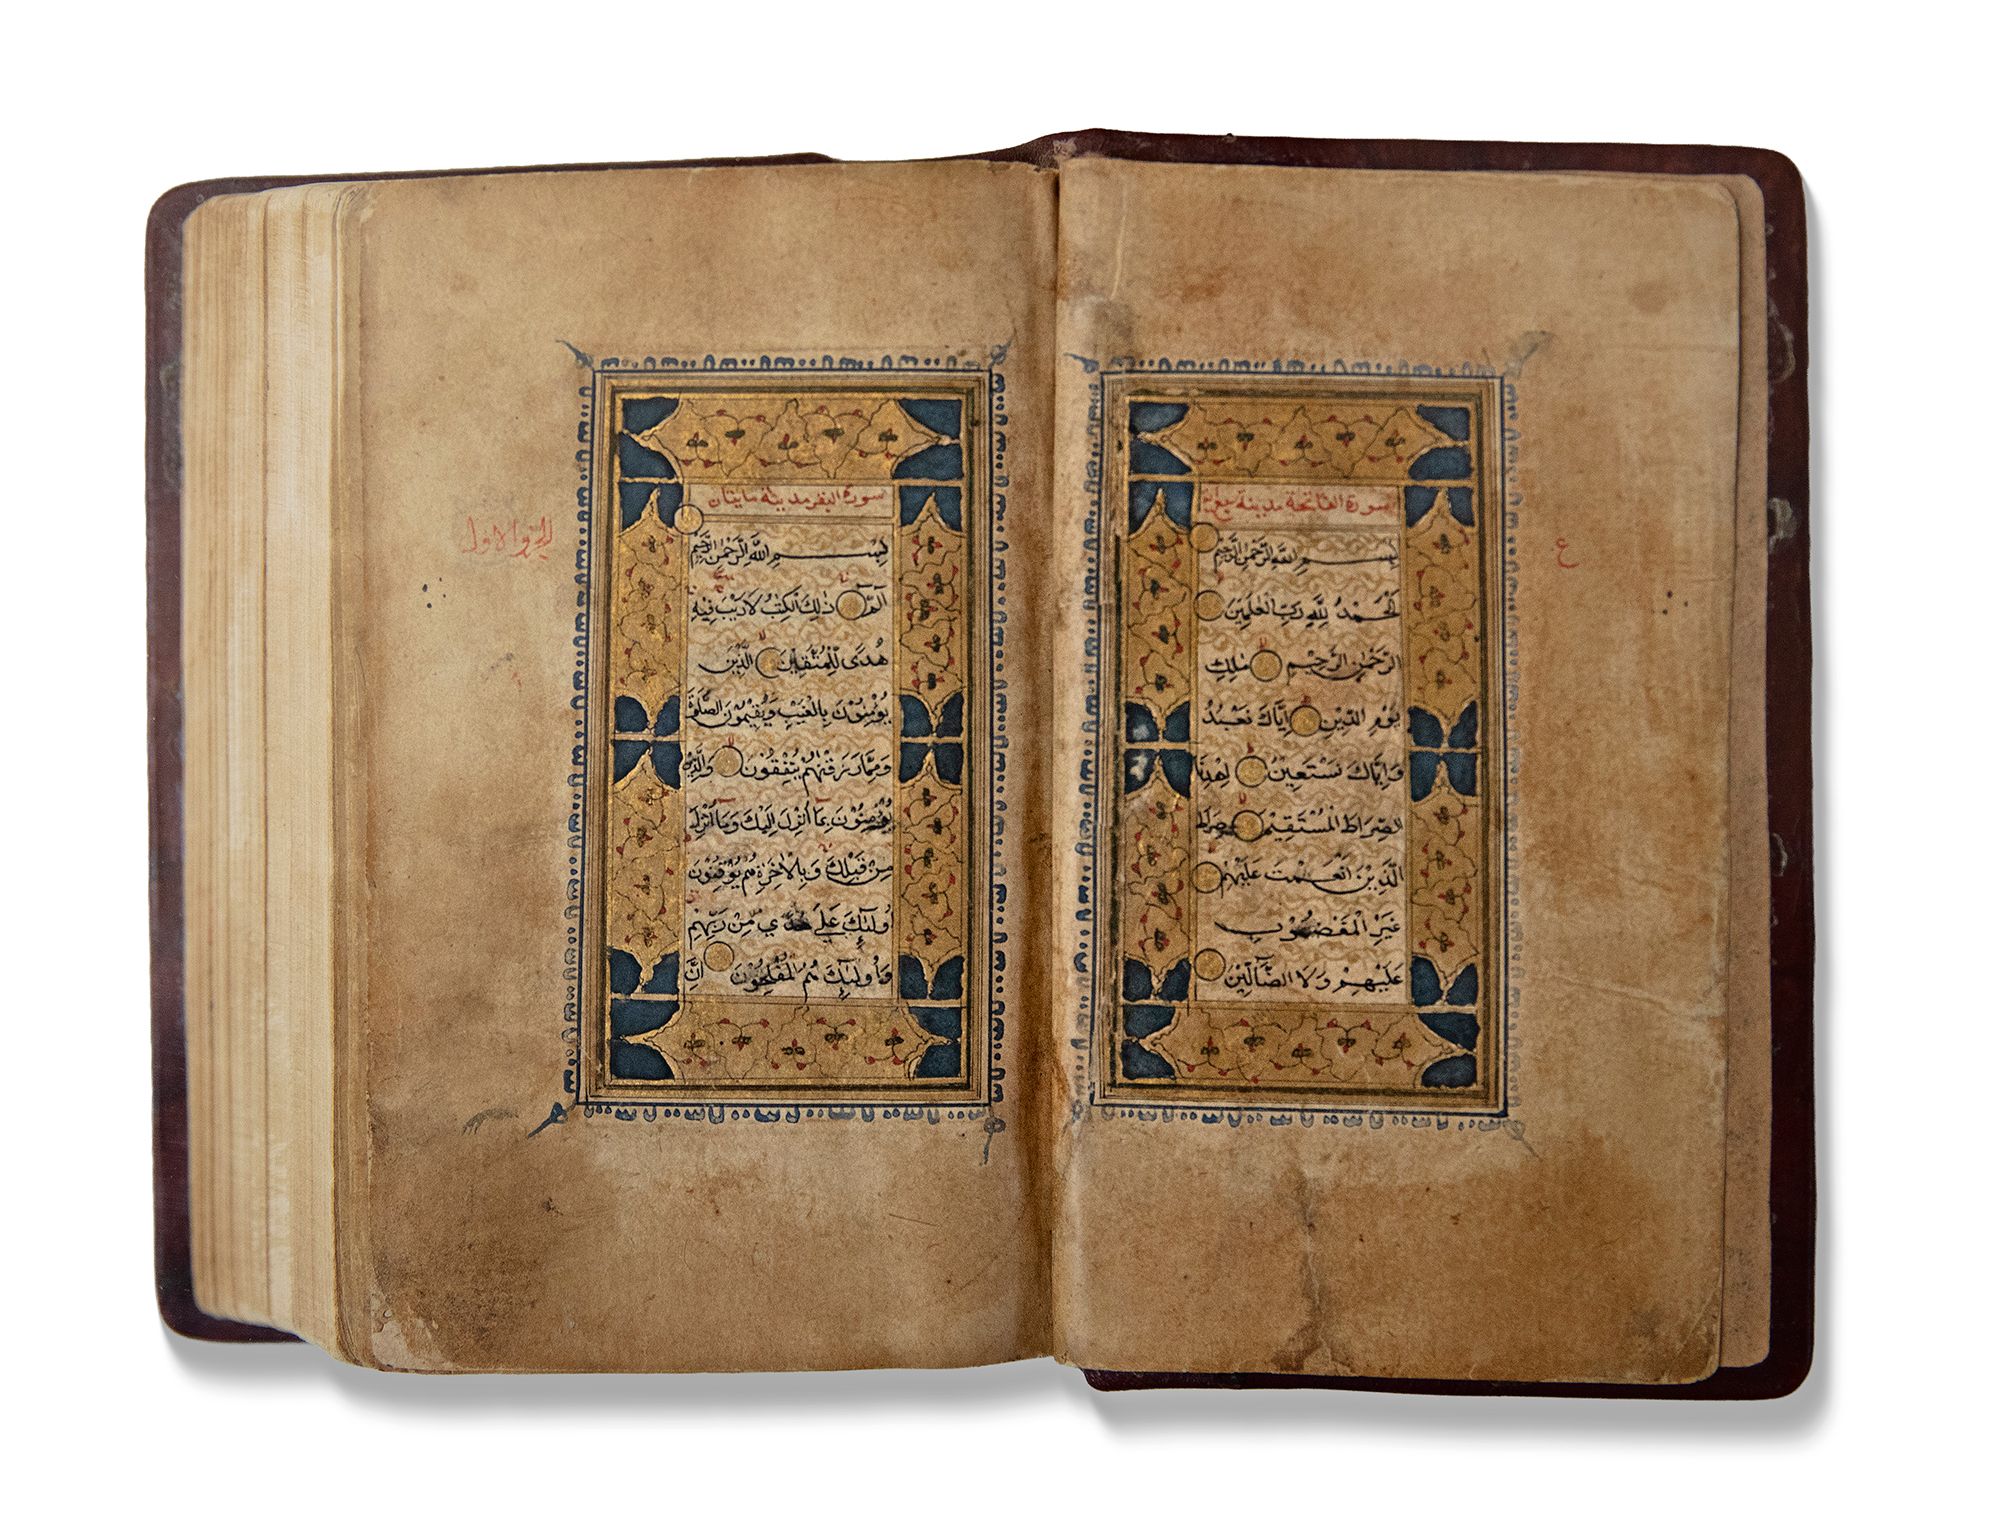 سورة الفاتحة مدينة سبع
بِسْمِ اللَّهِ الرَّحْمٰنِ الرَّحِيْمِ
اَلْحَمْدُ لِلّٰهِ رَبِّ الْعٰلَمِيْنَ
الرَّحْمٰنِ الرَّحِيْمِ مٰلِكِ
يَوْمِ الدِّيْنِ اِيَّاكَ نَعْبُدُ
وَاِيَّاكَ نَسْتَعِيْنُ اِهْدِنَا
الصِّرَاطَ الْمُسْتَقِيْمَ صِرَاطَ
الَّذِيْنَ اَنْعَمْتَ عَلَيْهِمْ
غَيْرِ الْمَغْضُوْبِ
عَلَيْهِمْ وَلَا الضَّآلِّيْنَ
ع
سورة البقر مدينة مايتان
بِسْمِ اللَّهِ الرَّحْمٰنِ الرَّحِيْمِ
الٓمّٓ ذٰلِكَ الْكِتٰبُ لَا رَيْبَ فِيْهِ
هُدًى لِّلْمُتَّقِيْنَ الَّذِيْنَ
يُؤْمِنُوْنَ بِالْغَيْبِ وَيُقِيْمُوْنَ الصَّلٰوةَ
وَمِمَّا رَزَقْنٰهُمْ يُنْفِقُوْنَ وَالَّذِيْنَ
يُؤْمِنُوْنَ بِمَآ اُنْزِلَ اِلَيْكَ وَمَآ اُنْزِلَ
مِنْ قَبْلِكَ وَبِالْاٰخِرَةِ هُمْ يُوْقِنُوْنَ
اُولٰٓئِكَ عَلٰى هُدًى مِنْ رَبِّهِمْ
وَاُولٰٓئِكَ هُمُ الْمُفْلِحُوْنَ اِنَّ
الجزو الاول